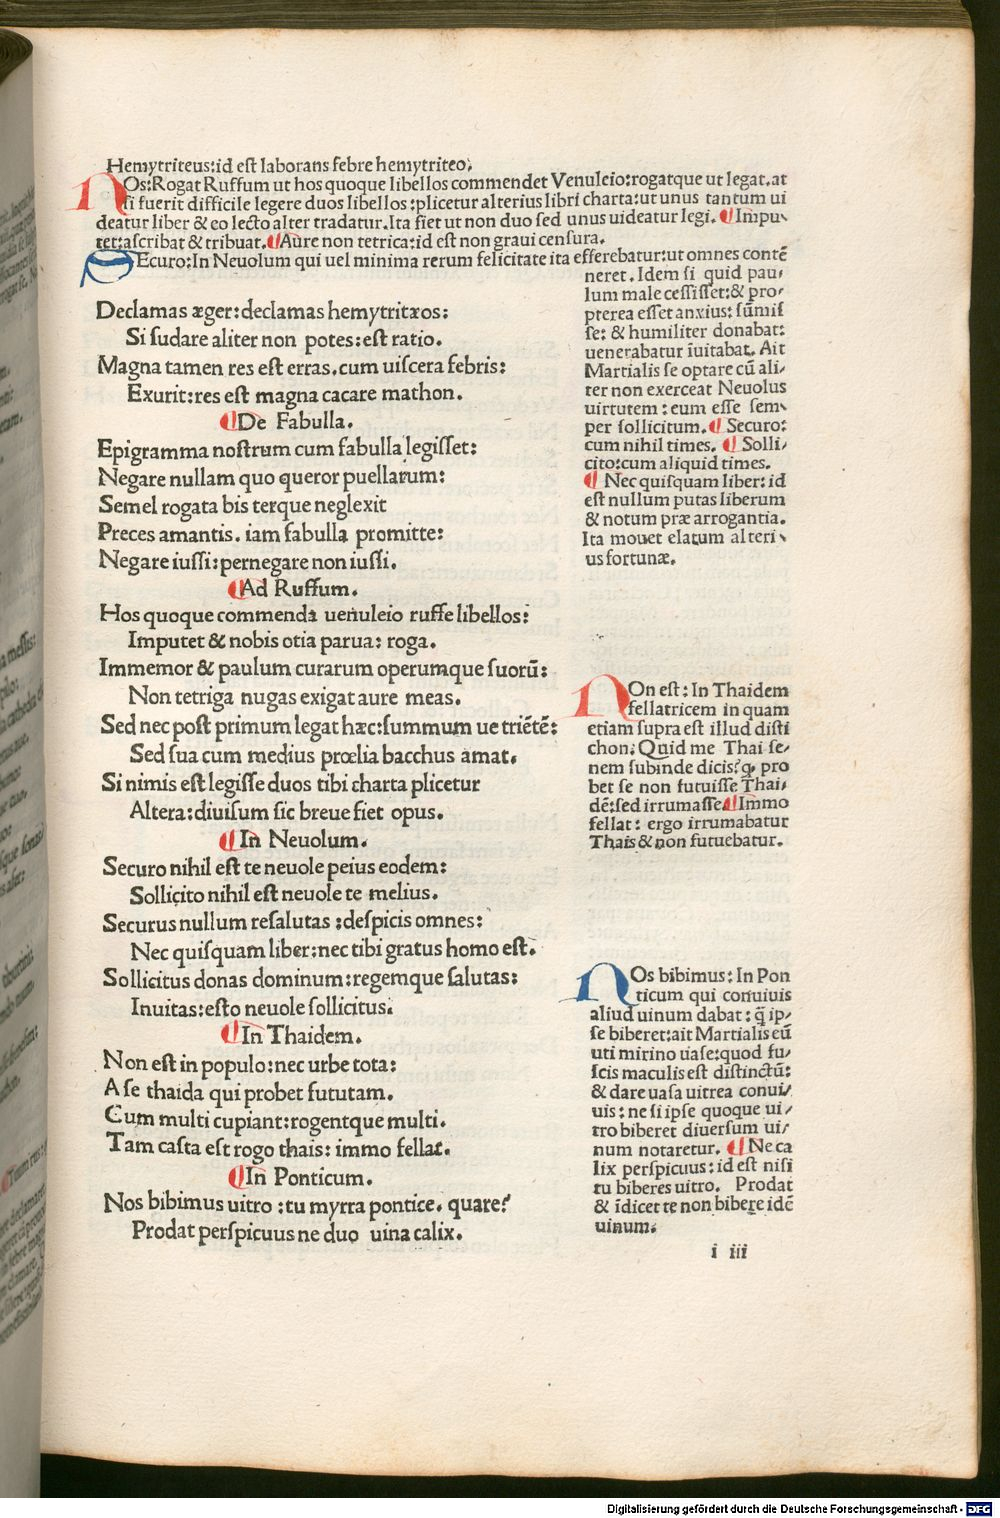 Hemytriteus:id est laborans febre hemytriteo.
NOs:Rogat Ruffum ut hos quoque libellos commendet Venuleio:rogatque ut legat.at
si fuerit difficile legere duos libellos:plicetur alterius libri charta:ut unus tantum ui
deatur liber & eo lecto alter tradatur.Ita fiet ut non duo sed unus uideatur legi. ¶Impu-
tet:ascribat & tribuat.¶Aure non tetrica:id est non graui censura.
SEcuro:In Neuolum qui uel minima rerum felicitate ita efferebatur:ut omnes contē
neret. Idem si quid pau-
lum male cessisset:& pro-
pterea esset anxius: sūmis
se: & humiliter donabat:
uenerabatur īuitabat. Ait
Martialis se optare cū ali-
ter non exerceat Neuolus
uirtutem: eum esse sem-
per sollicitum.¶ Securo:
cum nihil times. ¶ Solli-
cito:cum aliquid times.
¶ Nec quisquam liber: id
est nullum putas liberum
& notum præ arrogantia.
Ita mouet elatum alteri-
us fortunæ.
Declamas æger:declamas hemytritæos:
Si sudare aliter non potes:est ratio.
Magna tamen res est erras.cum uiscera febris:
Exurit:res est magna cacare mathon.
¶De Fabulla.
Epigramma nostrum cum fabulla legisset:
Negare nullam quo queror puellarum:
Semel rogata bis terque neglexit
Preces amantis. iam fabulla promitte:
Negare iussi:pernegare non iussi.
¶Ad Ruffum.
Hos quoque commenda uenuleio ruffe libellos:
Imputet & nobis otia parua: roga.
Immemor & paulum curarum operumque suorū:
Non tetriga nugas exigat aure meas.
Sed nec post primum legat hæc:summum ue triētē:
Sed sua cum medius prœlia bacchus amat.
Si nimis est legisse duos tibi charta plicetur
Altera:diuisum sic breue fiet opus.
¶In Neuolum.
Securo nihil est te neuole peius eodem:
Sollicito nihil est neuole te melius.
Securus nullum resalutas :despicis omnes:
Nec quisquam liber:nec tibi gratus homo est.
Sollicitus donas dominum:regemque salutas:
Inuitas:esto neuole sollicitus.
¶In Thaidem.
Non est in populo:nec urbe tota:
A se thaida qui probet fututam.
Cum multi cupiant:rogentque multi.
Tam casta est rogo thais: immo fellat.
¶In Ponticum.
Nos bibimus uitro :tu myrra pontice. quare?
Prodat perspicuus ne duo uina calix.
NOn est: In Thaidem
fellatricem in quam
etiam supra est illud disti
chon. Quid me Thai se-
nem subinde dicis? q̢ pro
bet se non futuisse Thai-
dē:sed irrumasse¶Immo
fellat: ergo irrumabatur
Thais & non futuebatur.
NOs bibimus: In Pon
ticum qui conuiuis
aliud uinum dabat: q̄ ip-
se biberet:ait Martialis eū
uti mirino uase:quod fu-
scis maculis est distinctū:
& dare uasa uitrea conui-
uis: ne si ipse quoque ui-
tro biberet diuersum ui-
num notaretur. ¶ Ne ca
lix perspicuus: id est nisi
tu biberes uitro. Prodat
& īdicet te non bibere idē
uinum.
i iii
Digitalisierung gefördert durch die Deutsche Forschungsgemeinschaft - DFG